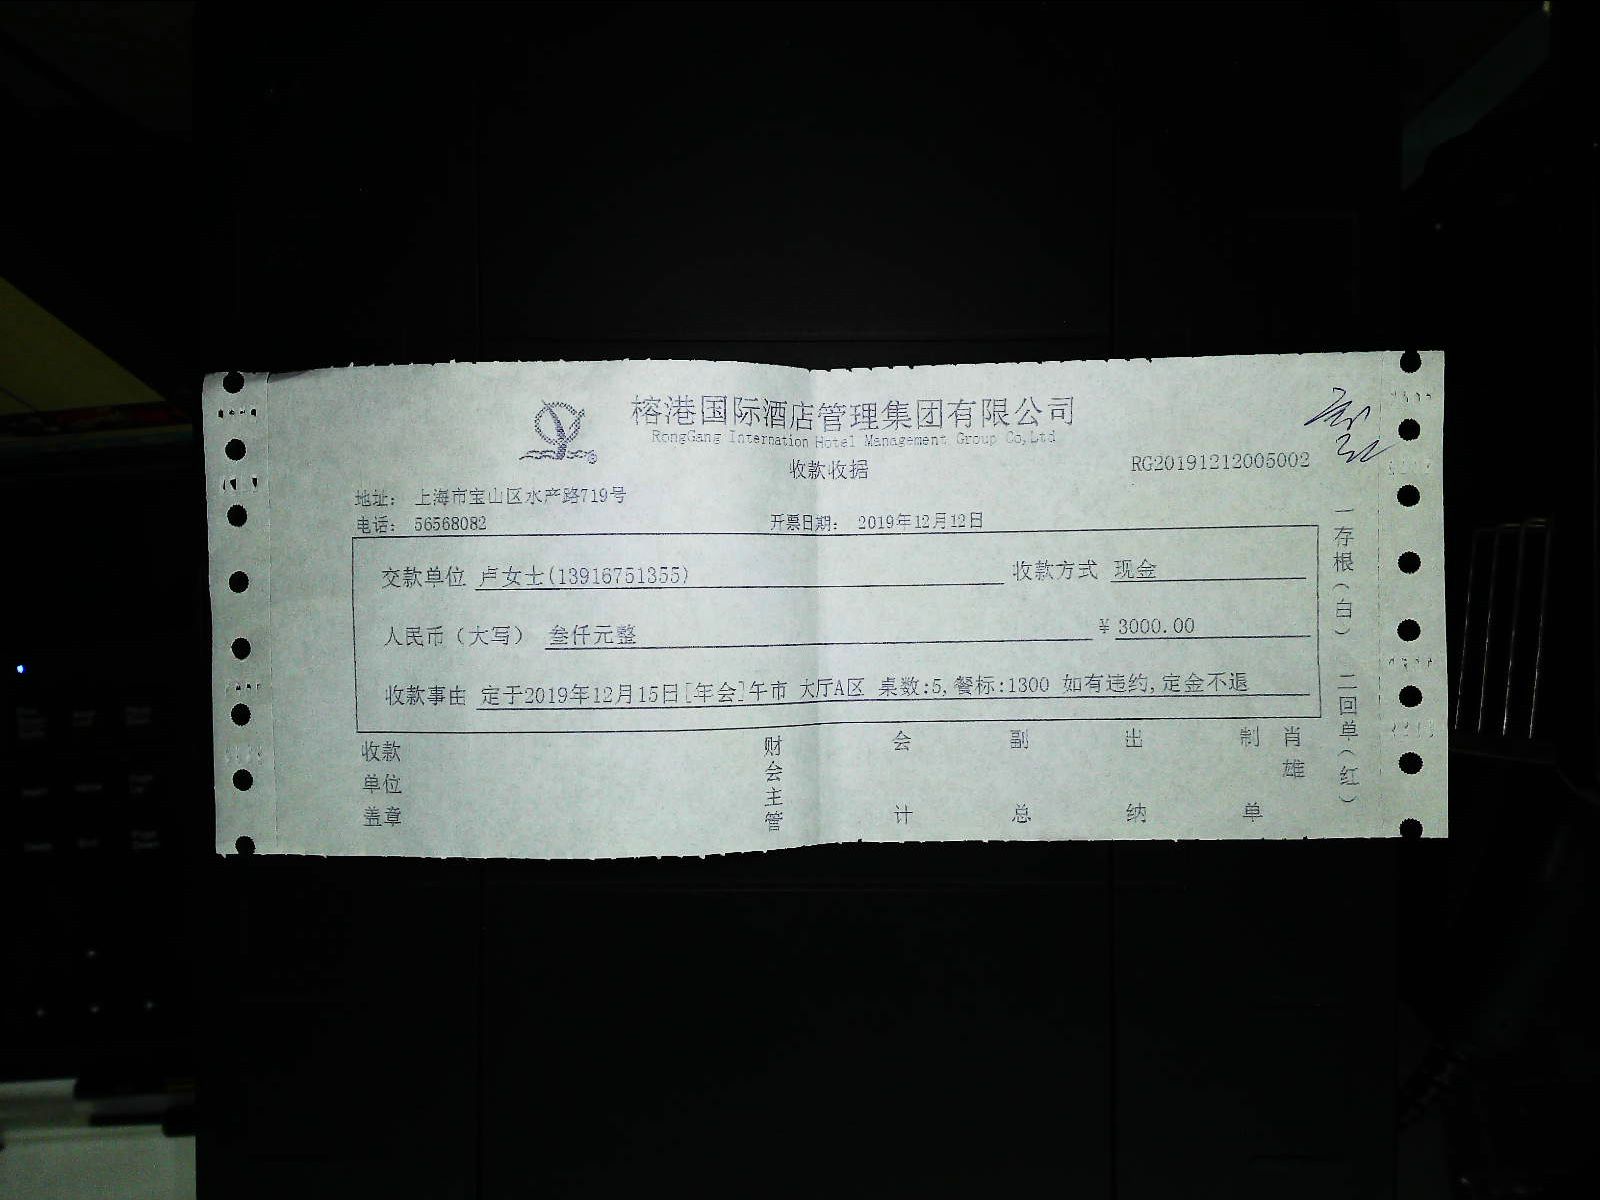 榕港国际酒店管理集团有限公司
RongGang Internation Hotel Management Group Co,Ltd
收款收据
RG20191212005002
地址： 上海市宝山区水产路719号
电话： 56568082 开票日期： 2019年12月12日
交款单位 卢女士(13916751355) 收款方式 现金
人民币（大写） 叁仟元整 ¥ 3000.00
收款事由 定于2019年12月15日[年会]午市 大厅A区 桌数:5,餐标:1300 如有违约,定金不退
收款单位盖章 财会主管 会计 副总 出纳 制单 肖雄
一存根（白） 二回单（红）